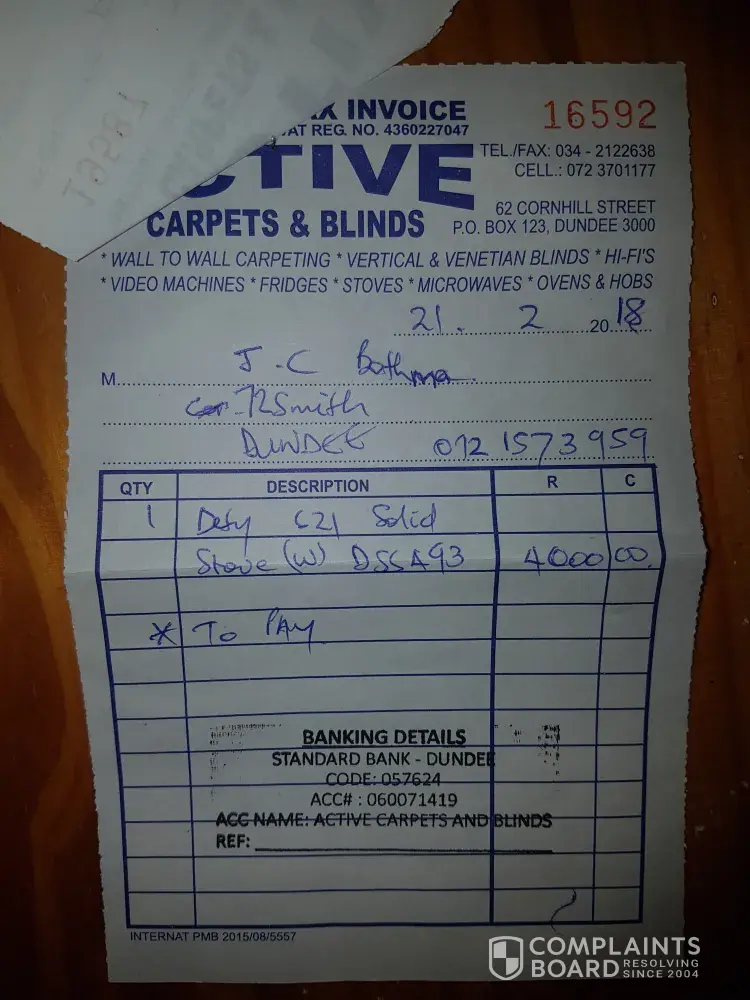 X INVOICE
16592
VAT REG. NO. 4360227047
CTIVE
TEL./FAX: 034 - 2122638
CELL.: 072 3701177
CARPETS & BLINDS
62 CORNHILL STREET
P.O. BOX 123, DUNDEE 3000
* WALL TO WALL CARPETING * VERTICAL & VENETIAN BLINDS * HI-FI'S
* VIDEO MACHINES * FRIDGES * STOVES * MICROWAVES * OVENS & HOBS
21. 2 2018
M J.C Bothma
72 Smith
DUNDEE 072 1573959
QTY DESCRIPTION R C
1 Defy 621 Solid
Stove (W) DSS493 4000 00
* To PAY
BANKING DETAILS
STANDARD BANK - DUNDEE
CODE: 057624
ACC# : 060071419
ACC NAME: ACTIVE CARPETS AND BLINDS
REF:
INTERNAT PMB 2015/08/5557
COMPLAINTS
BOARD RESOLVING
SINCE 2004